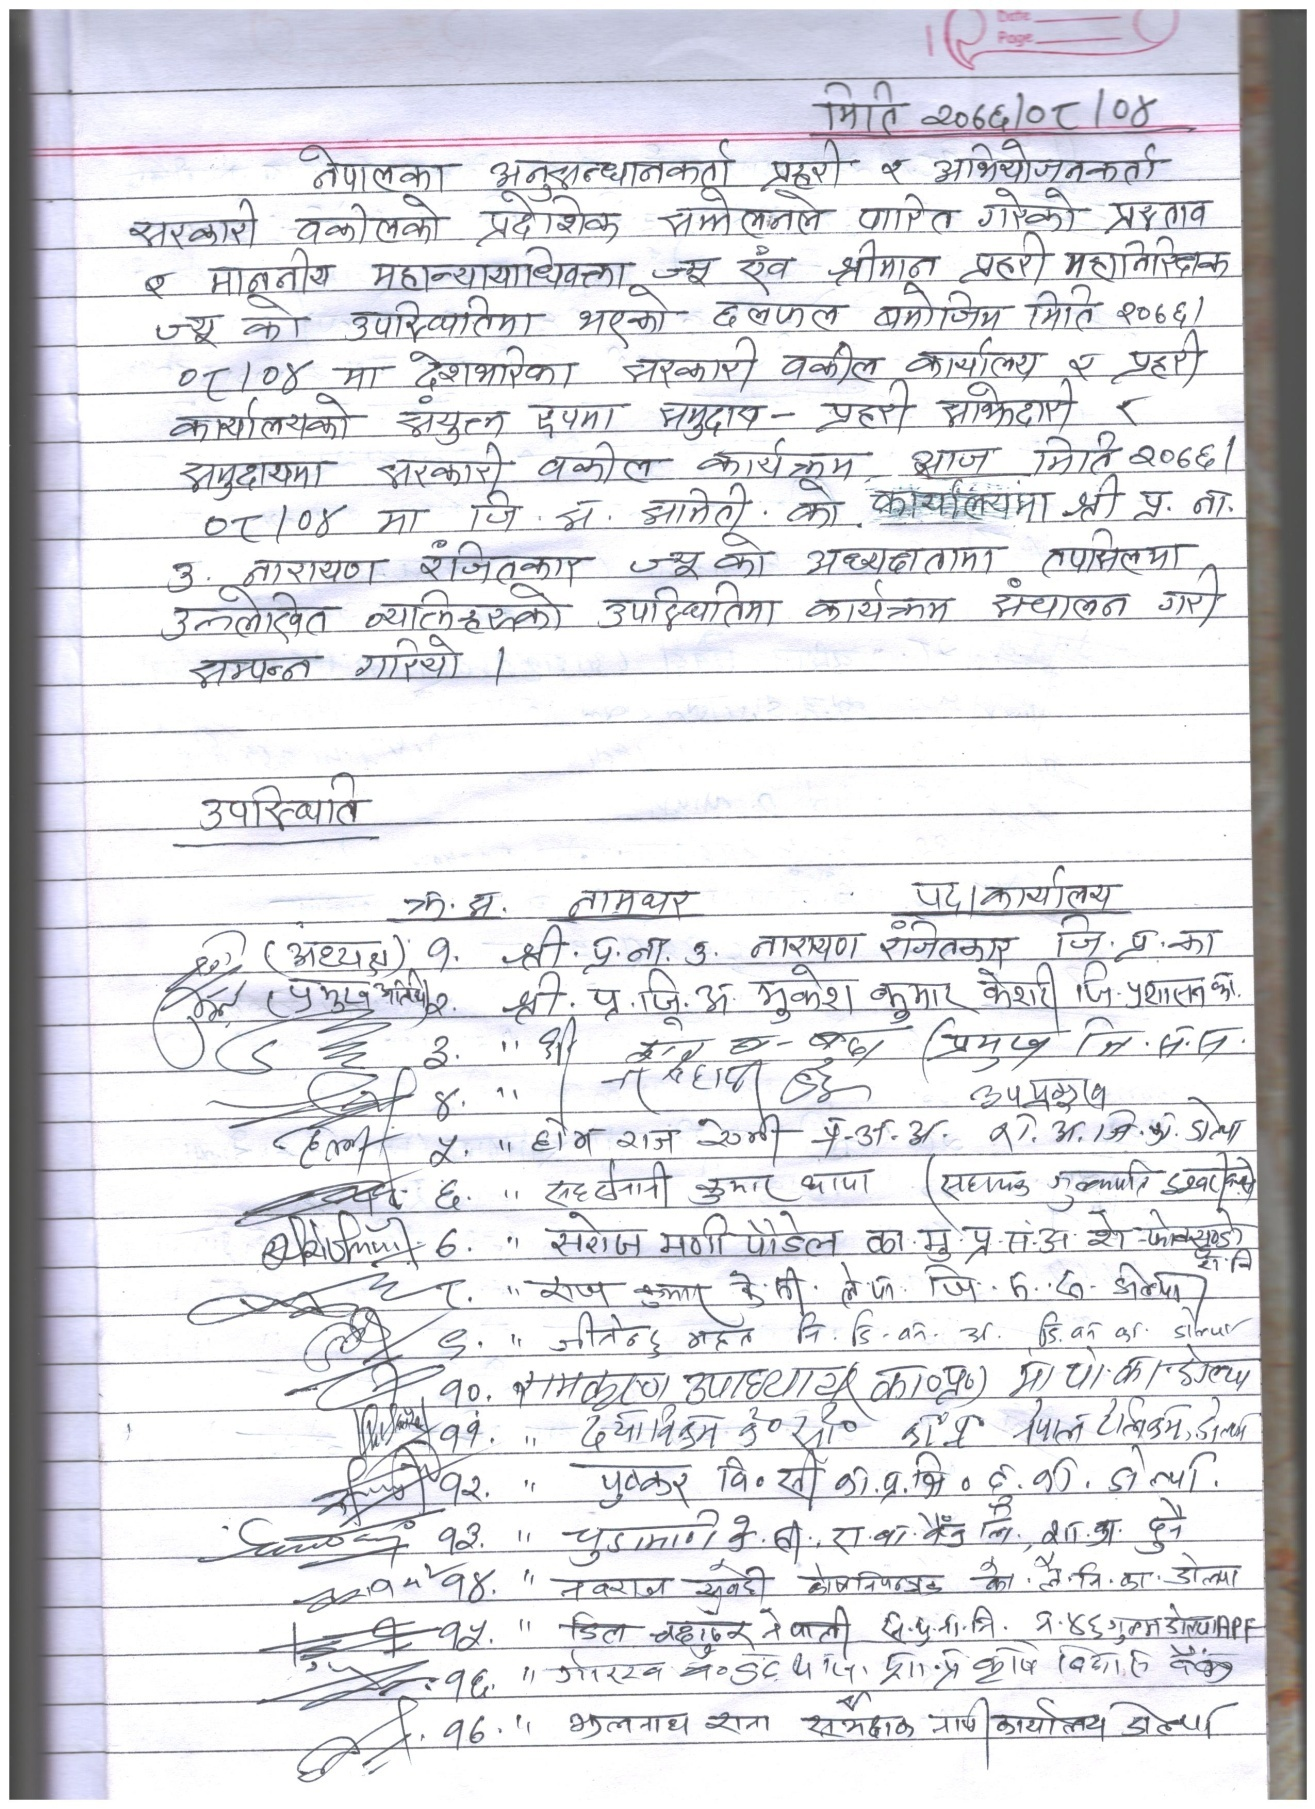 Date
Page
मिति २०७६/०८/०४
नेपालका अनुसन्धानकर्ता प्रहरी र अभियोजनकर्ता
सरकारी वकीलको प्रदेशिक सम्मेलनले पारित गरेको प्रस्ताव
र माननीय महान्यायाधिवक्ता ज्यू एंव श्रीमान प्रहरी महानिरिक्षक
ज्यू को उपस्थितिमा भएको छलफल बमोजिम मिति २०७६/
०८/०४ मा देशभरिका सरकारी वकील कार्यालय र प्रहरी
कार्यालयको संयुक्त रुपमा समुदाय - प्रहरी साझेदारी र
समुदायमा सरकारी वकील कार्यक्रम आज मिति २०७६/
०८/०४ मा जि. स. समिती. को कार्यालयमा श्री प्र. ना.
उ. नारायण रंजितकार ज्यू को अध्यक्षतामा तपसिलमा
उल्लेखित व्यक्तिहरुको उपस्थितिमा कार्यक्रम संचालन गरी
सम्पन्न गरियो ।
उपस्थिति
क्र. स. नामथर पद/कार्यालय
(अध्यक्ष) १. श्री. प्र. ना. उ. नारायण रंजितकार जि. प्र. का
(प्रमुख अतिथी) २. श्री. प्र. जि. अ. मुकेश कुमार केशरी जि. प्रशासन का.
३. " श्री (प्रमुख जि. स. स.
४. " उपप्रमुख
५. " होम राज रेग्मी प्र. अ. अ. रा. अ. जि. का. डोल्पा
६. " कुमार थापा (सहायक गुल्मपति
७. " सरोज मणी पौडेल का. मु. प्र. सं. अ. शे-फोक्सुण्डो
रा. नि
८. " राज कुमार के. सी. ले. पा. जि. डोल्पा
९. " जीतेन्द्र महत नि. डि. व. अ. डि. व. का. डोल्पा
१०. रामकृष्ण उपाध्याय (का०प्र०) डोल्पा
११. " दयाविक्रम के० सी० का. प्र. नेपाल टेलिकम, डोल्पा
१२. " पुष्कर वि० सी का. प्र. डोल्पा.
१३. " चुडामणी के. सी., रा. वा. बैंक लि, शा. का. दुनै
१४. " नवराज सुवेदी कोषनियन्त्रक को. ले. नि. का. डोल्पा
१५. " डिल बहादुर नेपाली स. प्र. ना. नि. नं. ४६ गुल्म डोल्पा APF
१६. " गोरख ब. थापा शा. प्र. कृषि विकास बैंक
१७. " झलनाथ राना सर्भेक्षक नापी कार्यालय डोल्पा